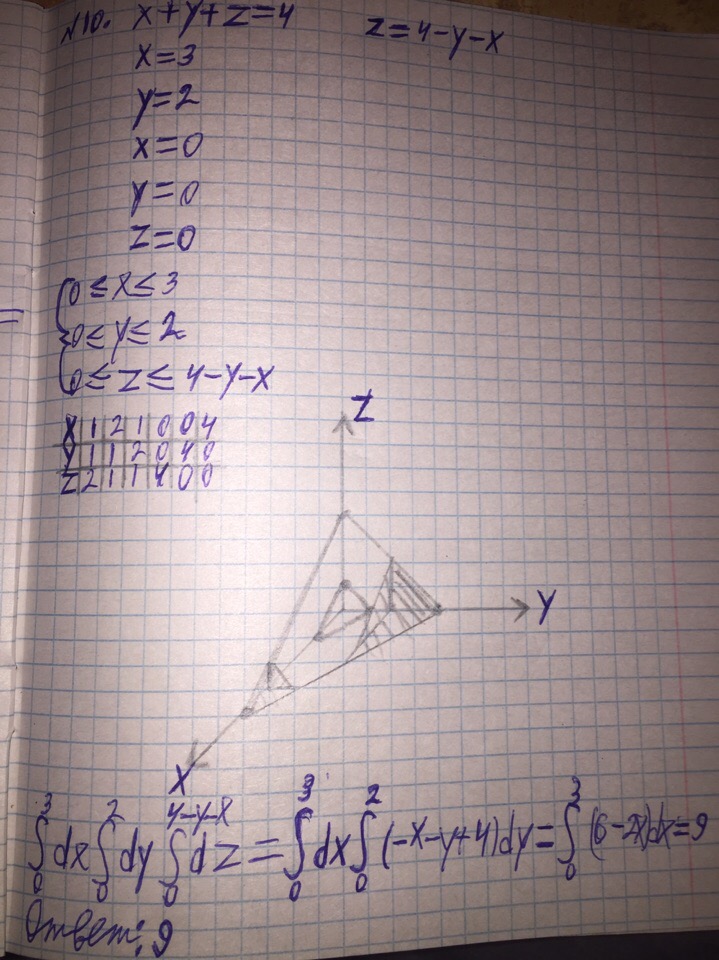 №10. x+y+z=4 z=4-y-x
x=3
y=2
x=0
y=0
z=0
0≤x≤3
0≤y≤2
0≤z≤4-y-x
x 1 2 1 0 0 4
y 1 1 2 0 4 0
z 2 1 1 4 0 0
Z
Y
X
∫₀³dx∫₀²dy∫₀^{4-y-x}dz=∫₀³dx∫₀²(-x-y+4)dy=∫₀³(6-2x)dx=9
Ответ: 9